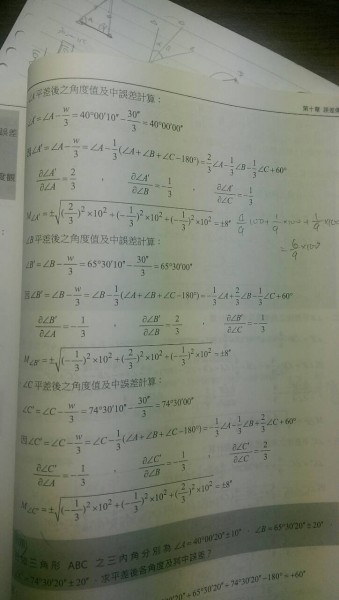 第十章
∠A平差後之角度值及中誤差計算：
∠A'=∠A-w/3=40°00'10"-30"/3=40°00'00"
因∠A'=∠A-w/3=∠A-1/3(∠A+∠B+∠C-180°)=2/3∠A-1/3∠B-1/3∠C+60°
∂∠A'/∂∠A=2/3 , ∂∠A'/∂∠B=-1/3 , ∂∠A'/∂∠C=-1/3
M∠A'=±√((2/3)²×10²+(-1/3)²×10²+(-1/3)²×10²)=±8"
=6/9×100
∠B平差後之角度值及中誤差計算：
∠B'=∠B-w/3=65°30'10"-30"/3=65°30'00"
因∠B'=∠B-w/3=∠B-1/3(∠A+∠B+∠C-180°)=-1/3∠A+2/3∠B-1/3∠C+60°
∂∠B'/∂∠A=-1/3 , ∂∠B'/∂∠B=2/3 , ∂∠B'/∂∠C=-1/3
M∠B'=±√((-1/3)²×10²+(2/3)²×10²+(-1/3)²×10²)=±8"
∠C平差後之角度值及中誤差計算：
∠C'=∠C-w/3=74°30'10"-30"/3=74°30'00"
因∠C'=∠C-w/3=∠C-1/3(∠A+∠B+∠C-180°)=-1/3∠A-1/3∠B+2/3∠C+60°
∂∠C'/∂∠A=-1/3 , ∂∠C'/∂∠B=-1/3 , ∂∠C'/∂∠C=2/3
M∠C'=±√((-1/3)²×10²+(-1/3)²×10²+(2/3)²×10²)=±8"
三角形 ABC 之三內角分別為 ∠A=40°00'20"±10"，∠B=65°30'20"±20"，
=74°30'20"±20"，求平差後各角度及其中誤差？
+65°30'20"+74°30'20"-180°=+60"